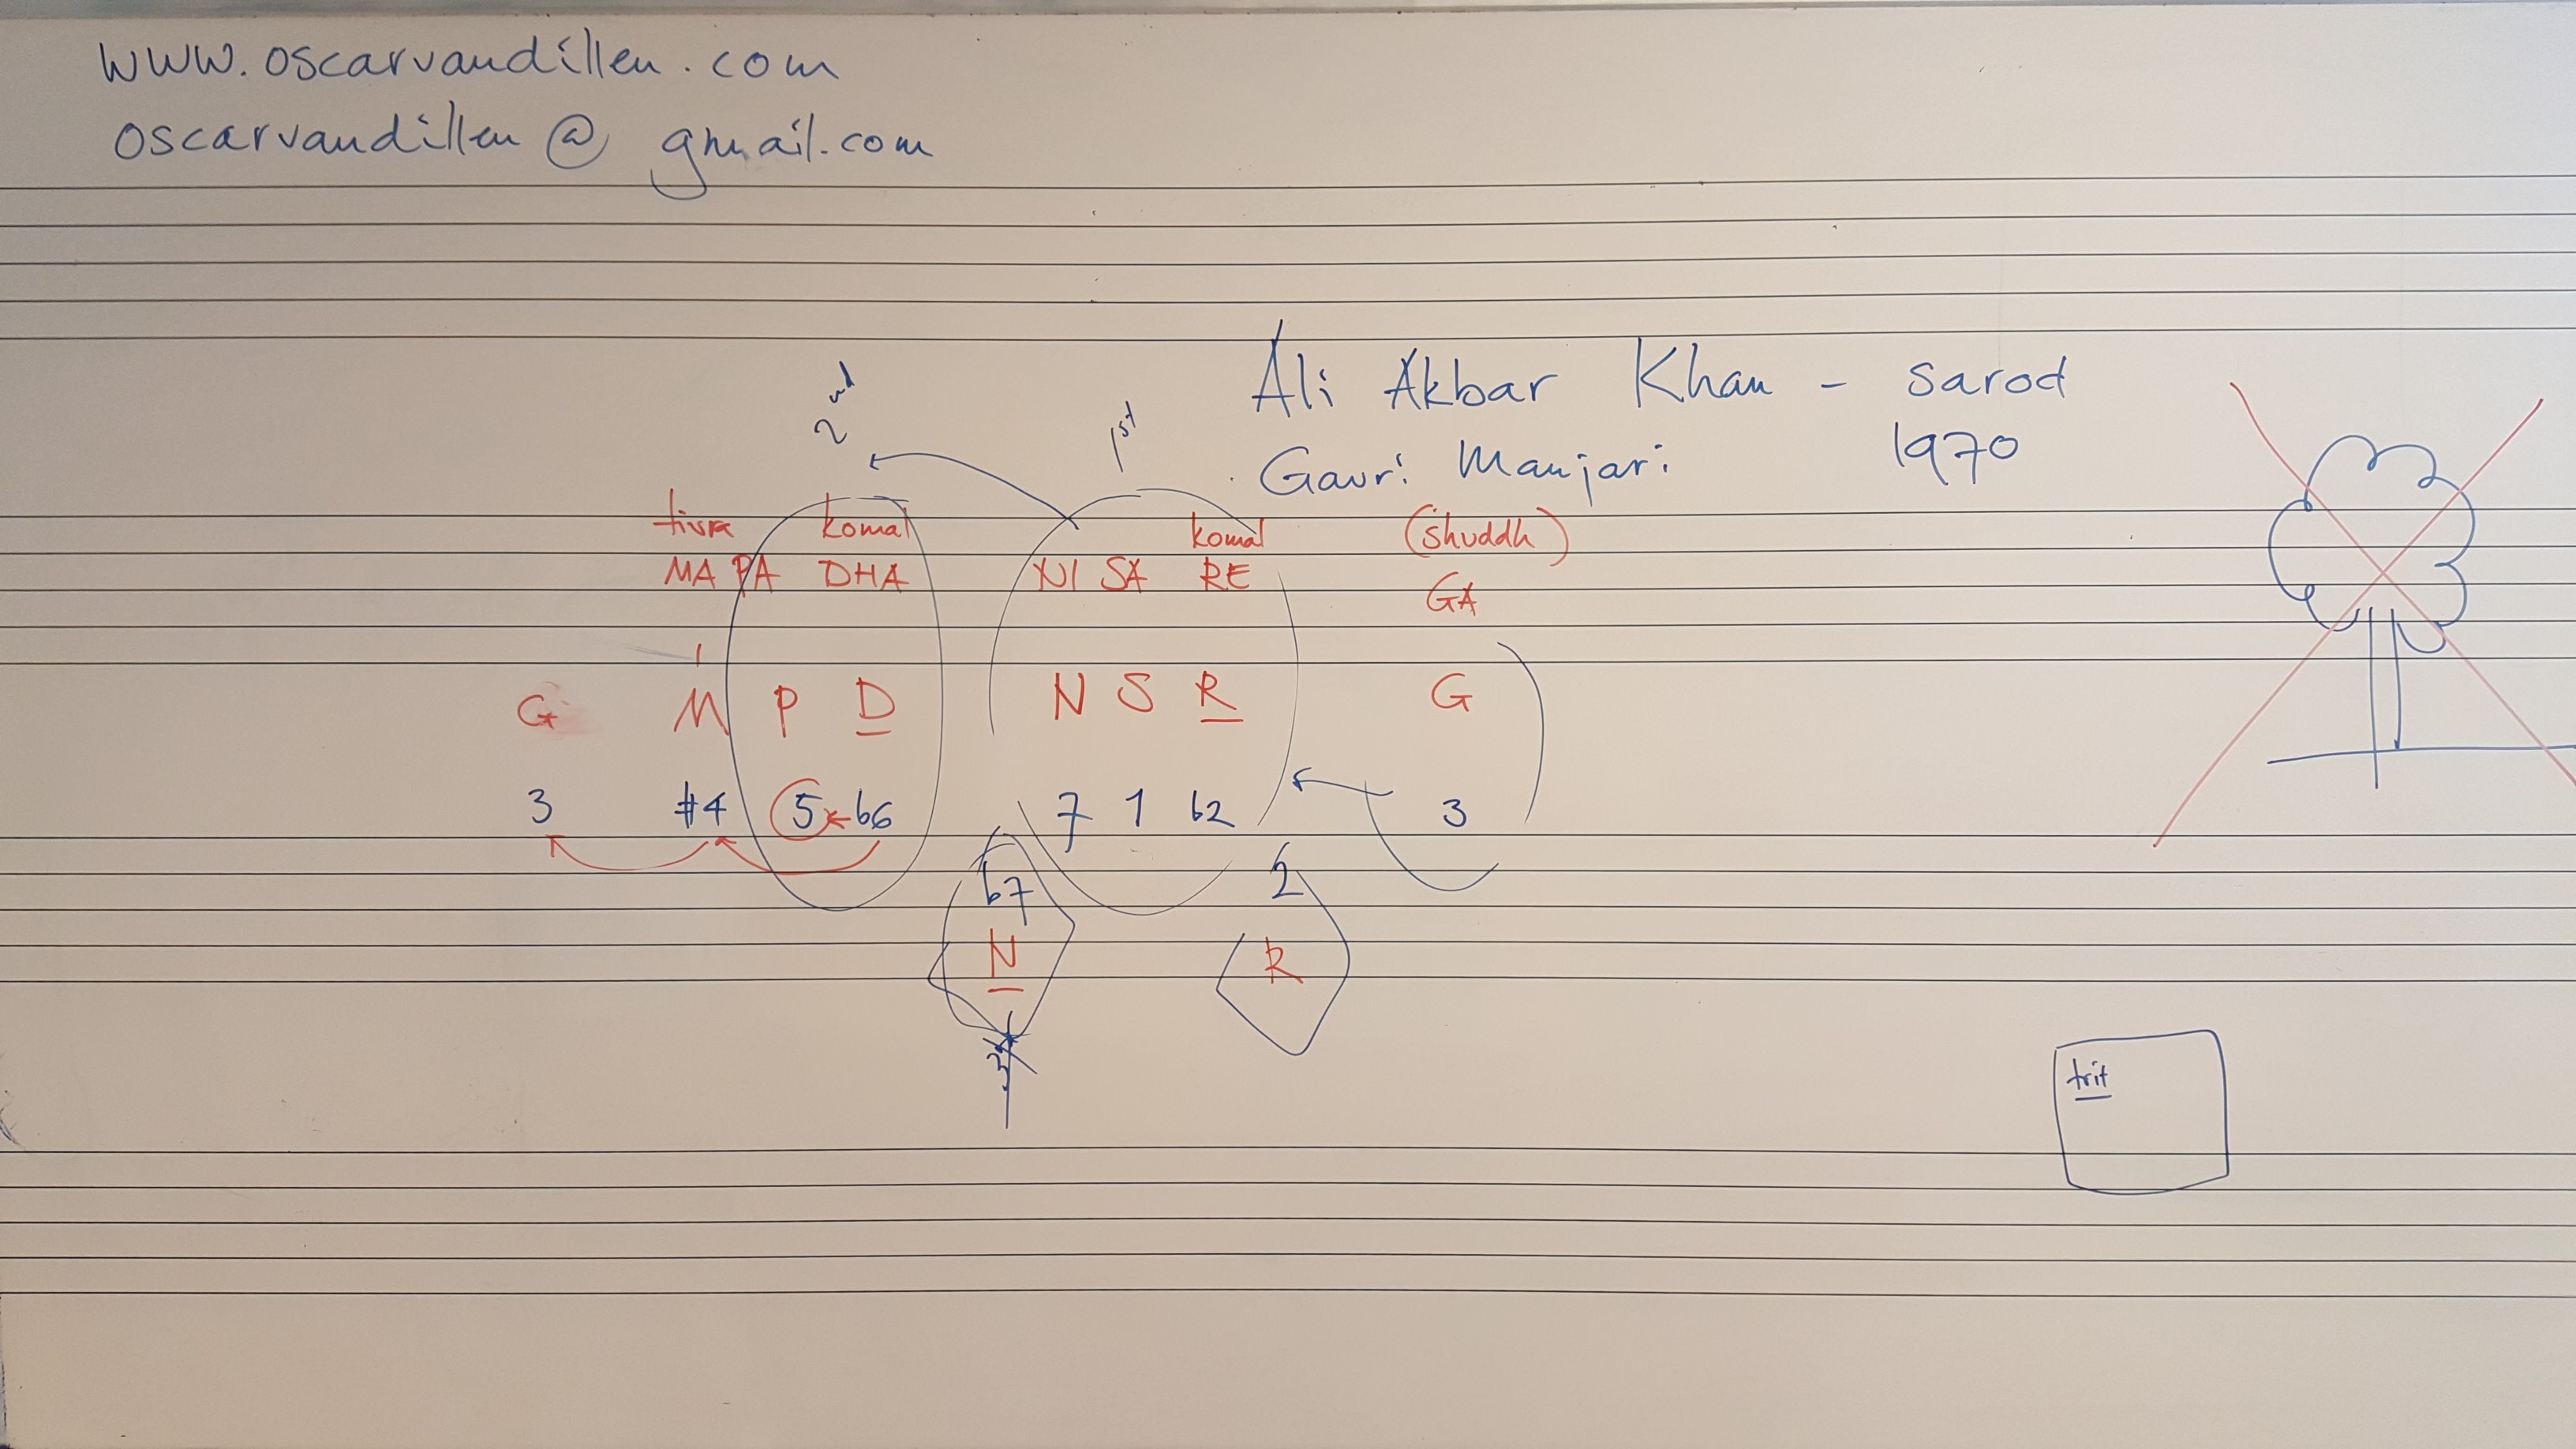 www.oscarvandillen.com
oscarvandillen @ gmail.com
Ali Akbar Khan - sarod
Gauri Manjari 1970
2nd 1st
tivra komal komal (shuddh)
MA PA DHA NI SA RE GA
G M P D N S R G
3 #4 5 b6 7 1 b2 3
b7 2
N R
trit